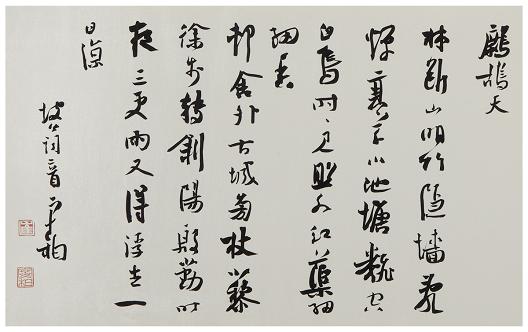 鷓鴣天
林斷山明竹隱墻亂
蟬衰草小池塘翻空
白鳥時時見照水紅蕖細
細香
邨舍外古城旁杖藜
徐步轉斜陽殷勤昨
夜三更雨又得浮生一
日涼
坡詞